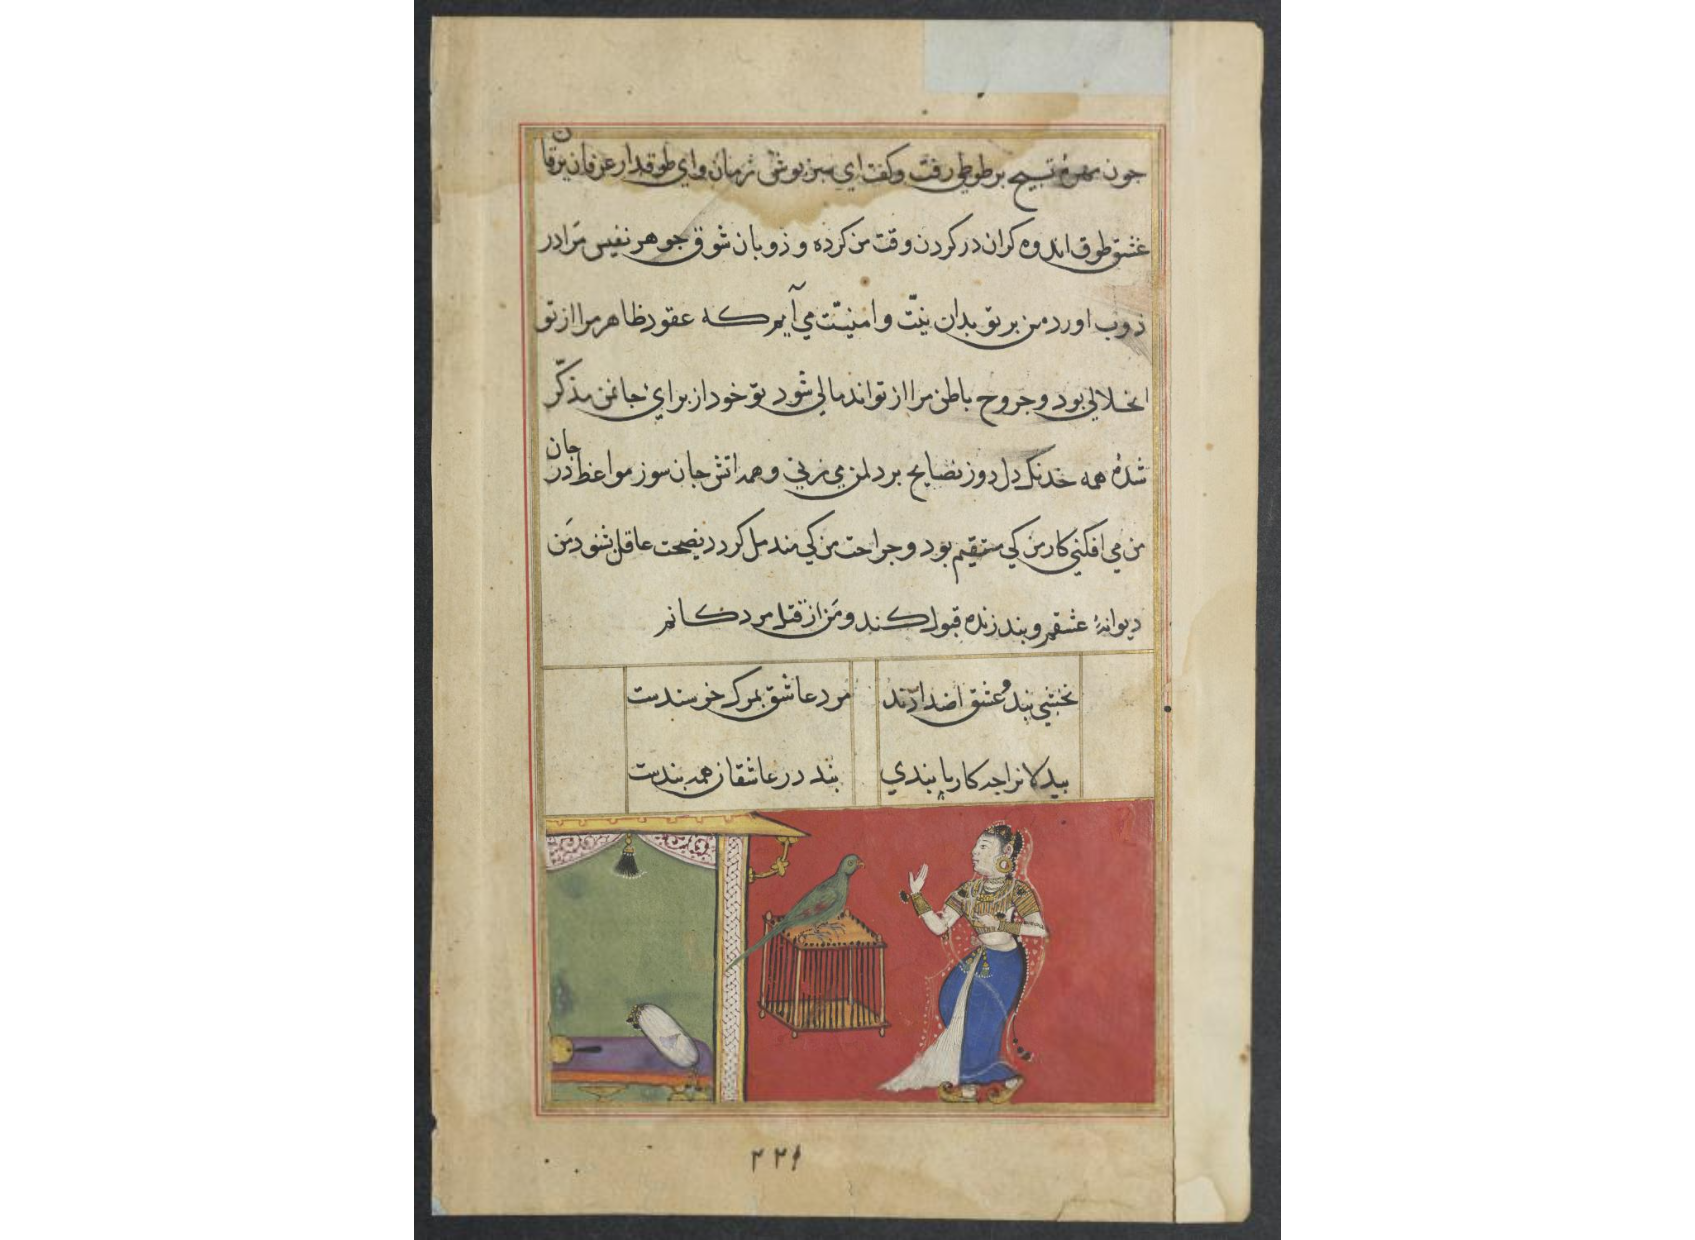 جون مهرهٔ تسبیح بر طوطی رفت و کفت ای سبز بوش زمان و ای طوقدار عرفان برقان
عشق طوق اندوه کران در کردن وقت من کرده و ذوبان شوق جوهر نفیس مرا در
ذوب اورد من بر تو بدان نیّت و امنیّت می آیم که عقود ظاهر مرا از تو
انحلالی بود و جروح باطن مرا از تو اندمالی شود تو خود از برای جانمن مذکّر
شدهٔ همه خدنک دل دوز نصایح بر دلمن می زنی و همه اتش جان سوز مواعظ در جان
من می افکنی کار من کی مستقیم بود و جراحت من کی مندمل کردد نصیحت عاقل شنود من
دیوانهٔ عشقم و بند زنده قبول کند و من از قتل مردکانم
نخشبی بند و عشق اضدادند مرد عاشق بمرک خرسندست
بیدلانرا چه کار با بندی بند در عاشقان همه بندست
۲۲۹